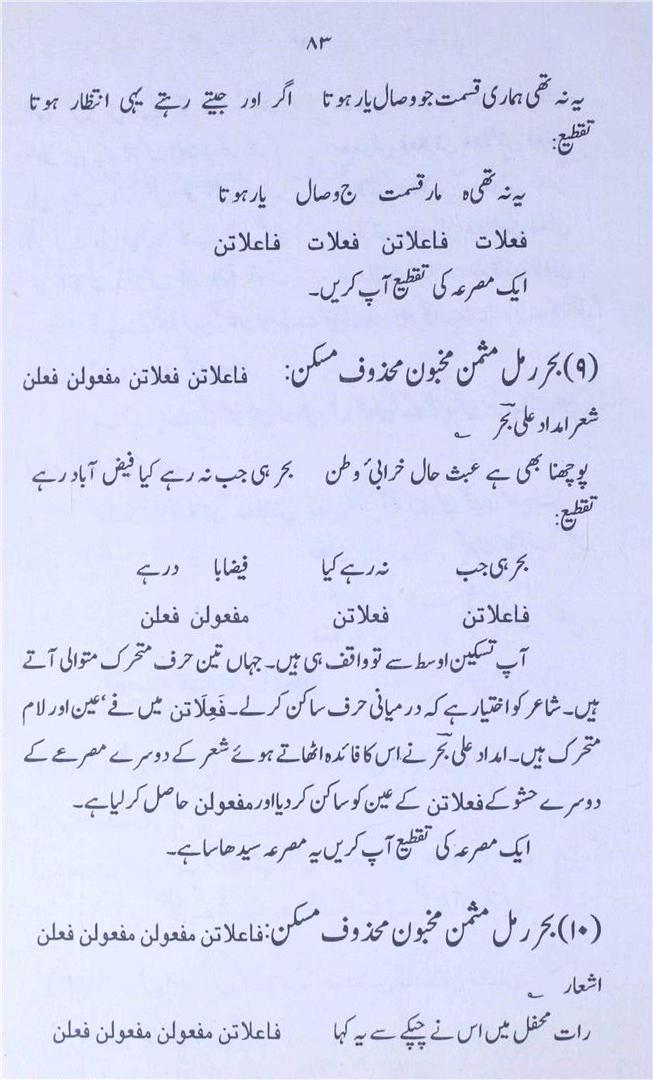 ۸۳
یہ نہ تھی ہماری قسمت جو وصال یار ہوتا اگر اور جیتے رہتے یہی انتظار ہوتا
تقطیع:
یہ نہ تھی ہ مار قسمت ج و صال یار ہوتا
فعلات فاعلاتن فعلات فاعلاتن
ایک مصرعہ کی تقطیع آپ کریں۔
(۹) بحر رمل مثمن مخبون محذوف مسکن: فاعلاتن فعلاتن مفعولن فعلن
شعر امداد علی بحر
پوچھنا بھی ہے عبث حال خرابیٔ وطن بحر ہی جب نہ رہے کیا فیض آباد رہے
تقطیع:
بحر ہی جب نہ رہے کیا فیضابا د رہے
فاعلاتن فعلاتن مفعولن فعلن
آپ تسکین اوسط سے تو واقف ہی ہیں۔ جہاں تین حرف متحرک متوالی آتے
ہیں۔ شاعر کو اختیار ہے کہ درمیانی حرف ساکن کرلے۔ فَعِلَاتن میں فے‘ عین اور لام
متحرک ہیں۔ امداد علی بحر نے اس کا فائدہ اٹھاتے ہوئے شعر کے دوسرے مصرعے کے
دوسرے حشو کے فعلاتن کے عین کو ساکن کردیا اور مفعولن حاصل کرلیا ہے۔
ایک مصرعہ کی تقطیع آپ کریں یہ مصرعہ سیدھا سا ہے۔
(۱۰) بحر رمل مثمن مخبون محذوف مسکن: فاعلاتن مفعولن مفعولن فعلن
اشعار
رات محفل میں اس نے چپکے سے یہ کہا فاعلاتن مفعولن مفعولن فعلن